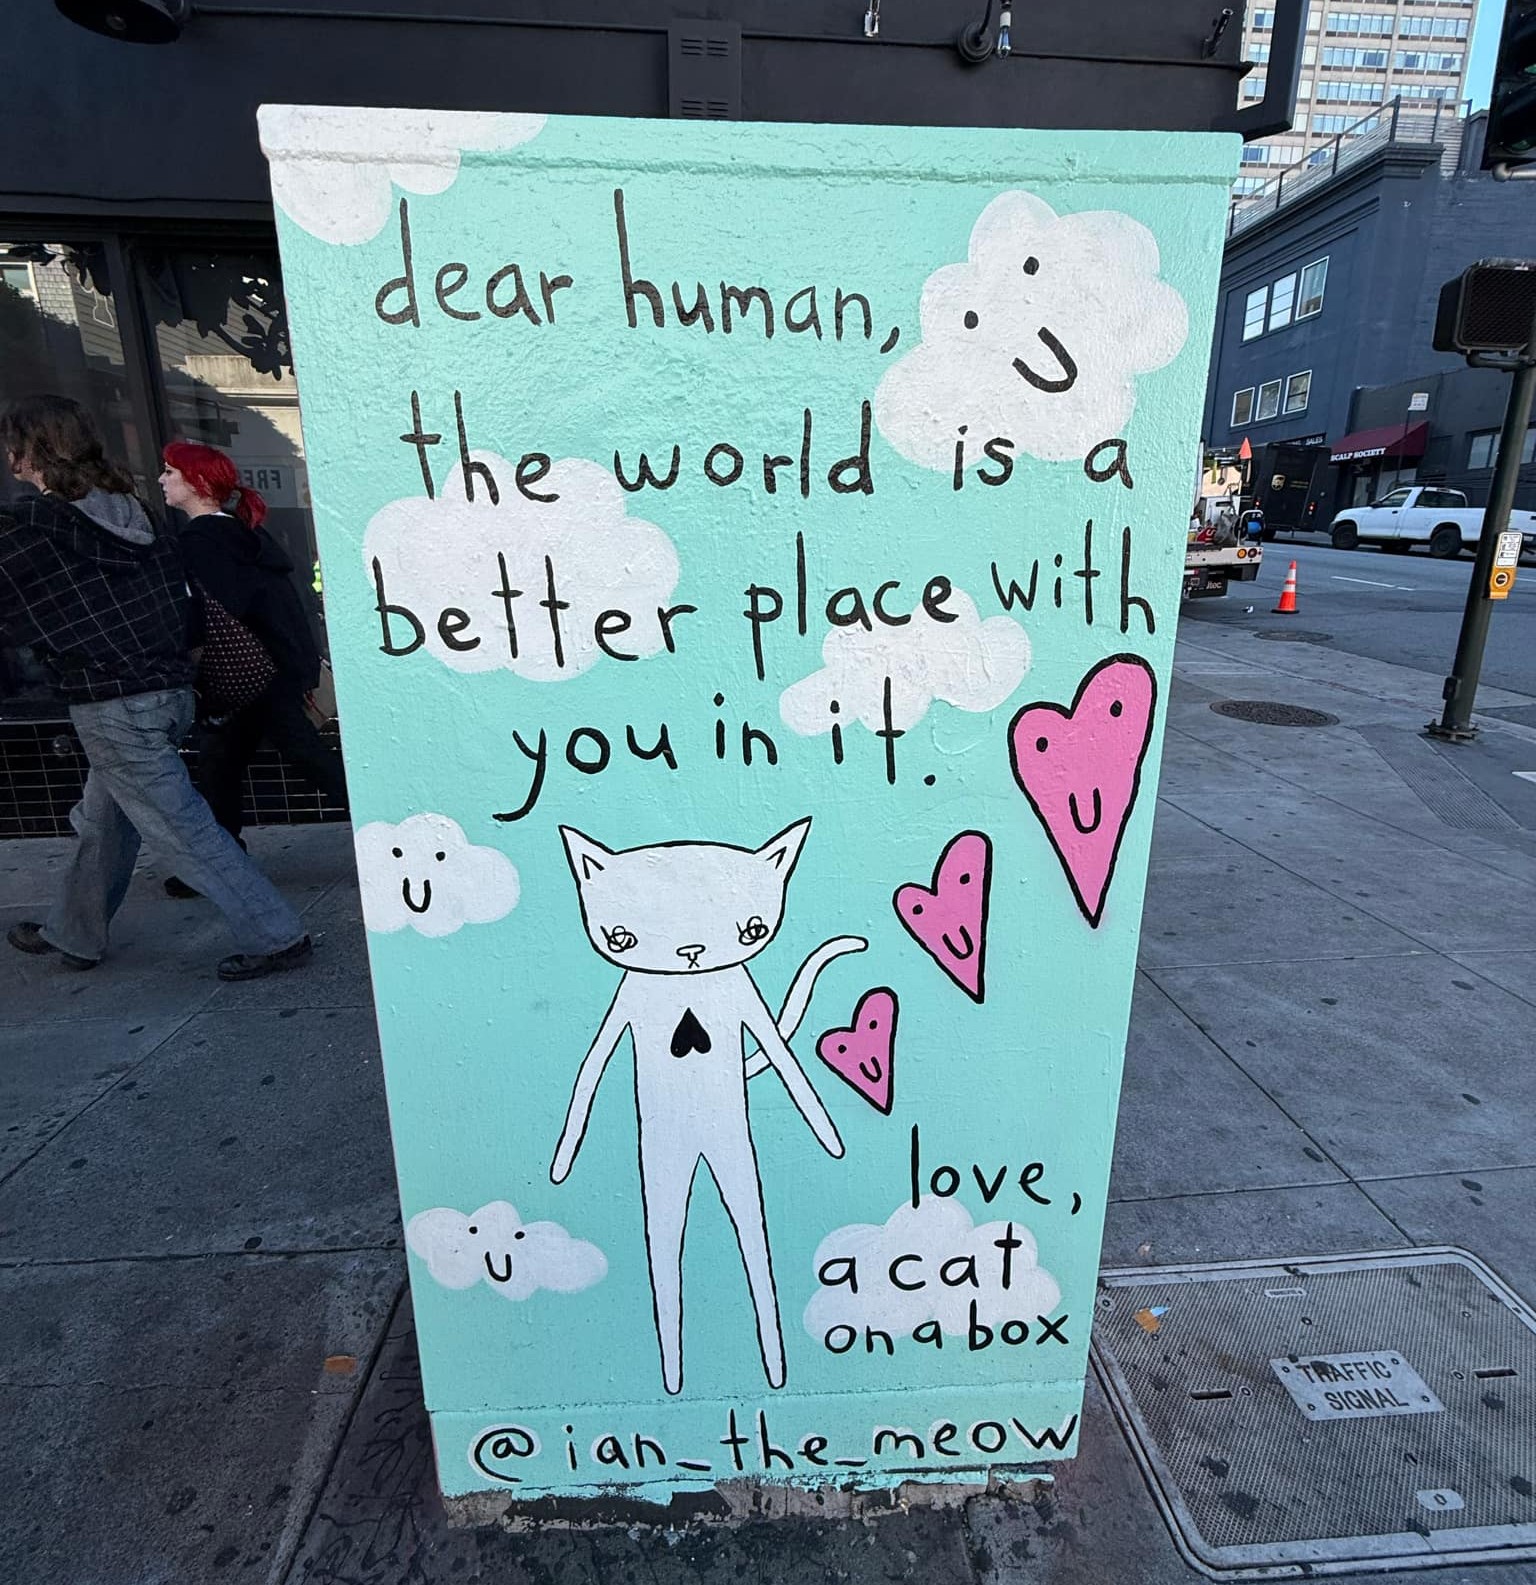 dear human,
the world is a
better place with
you in it.
love,
a cat
on a box
@ian_the_meow
TRAFFIC
SIGNAL
SCALP SOCIETY
SALES
FRE